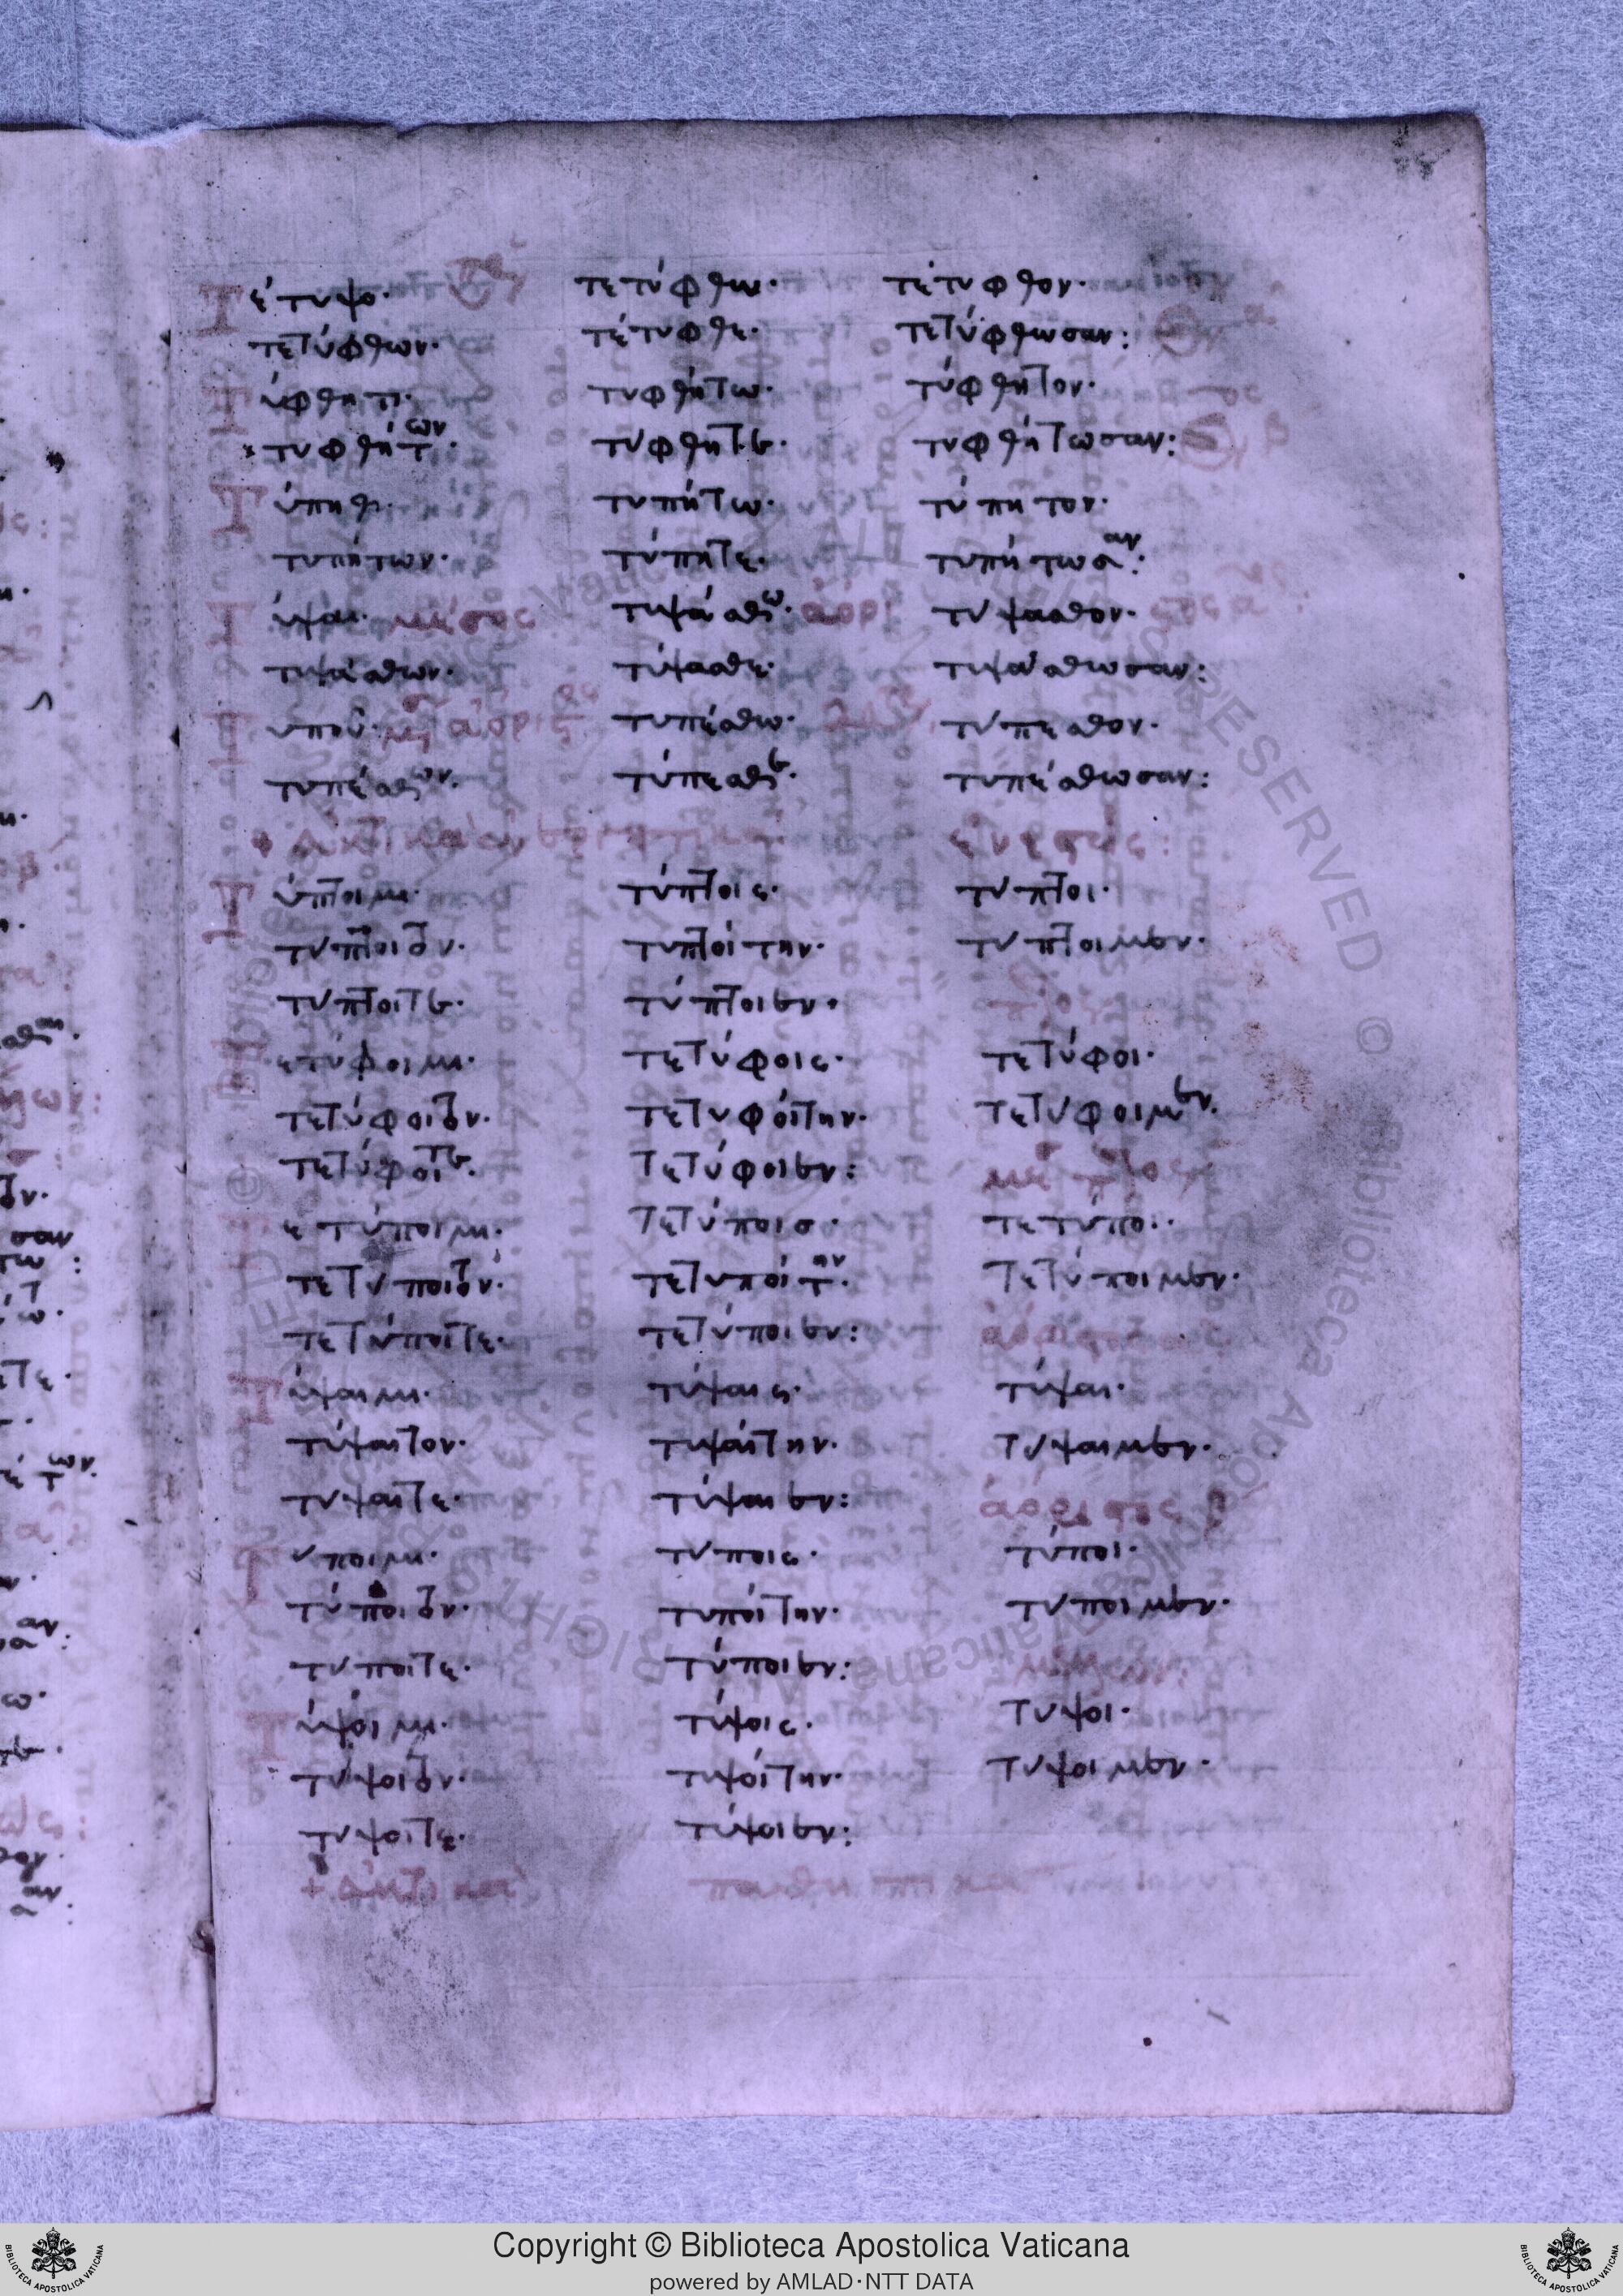 Τέτυψο· τετύφθω· τέτυφθον·
τετύφθων· τέτυφθε· τετύφθωσαν:
Τύφθητι· τυφθήτω· τύφθητον·
τυφθήτων· τύφθητε· τυφθήτωσαν:
Τύπηθι· τυπήτω· τύπητον·
τυπήτων· τύπητε· τυπήτωσαν:
Τύψαι· μέσος τυψάσθω· ἀόρι τύψασθον· στος α:
τυψάσθων· τύψασθε· τυψάσθωσαν:
Τυποῦ· τυπέσθω· τύπεσθον·
τυπέσθων· τύπεσθε· τυπέσθωσαν:
+ εὐκτικὰ ἐνεργητικά: ἐνεστώς:
Τύπτοιμι· τύπτοις· τύπτοι·
τύπτοιτον· τυπτοίτην· τύπτοιμεν·
τύπτοιτε· τύπτοιεν·
Τετύφοιμι· τετύφοις· τετύφοι·
τετύφοιτον· τετυφοίτην· τετύφοιμεν·
τετύφοιτε· τετύφοιεν:
Τετύποιμι· τετύποις· τετύποι·
τετύποιτον· τετυποίτην· τετύποιμεν·
τετύποιτε· τετύποιεν: ἀόριστος
Τύψαιμι· τύψαις· τύψαι·
τύψαιτον· τυψαίτην· τύψαιμεν·
τύψαιτε· τύψαιεν: ἀόριστος β
Τύποιμι· τύποις· τύποι·
τύποιτον· τυποίτην· τύποιμεν·
τύποιτε· τύποιεν: μέλλων:
Τύψοιμι· τύψοις· τύψοι·
τύψοιτον· τυψοίτην· τύψοιμεν·
τύψοιτε· τύψοιεν:
+ εὐκτικὰ παθητικά
Copyright © Biblioteca Apostolica Vaticana
powered by AMLAD·NTT DATA